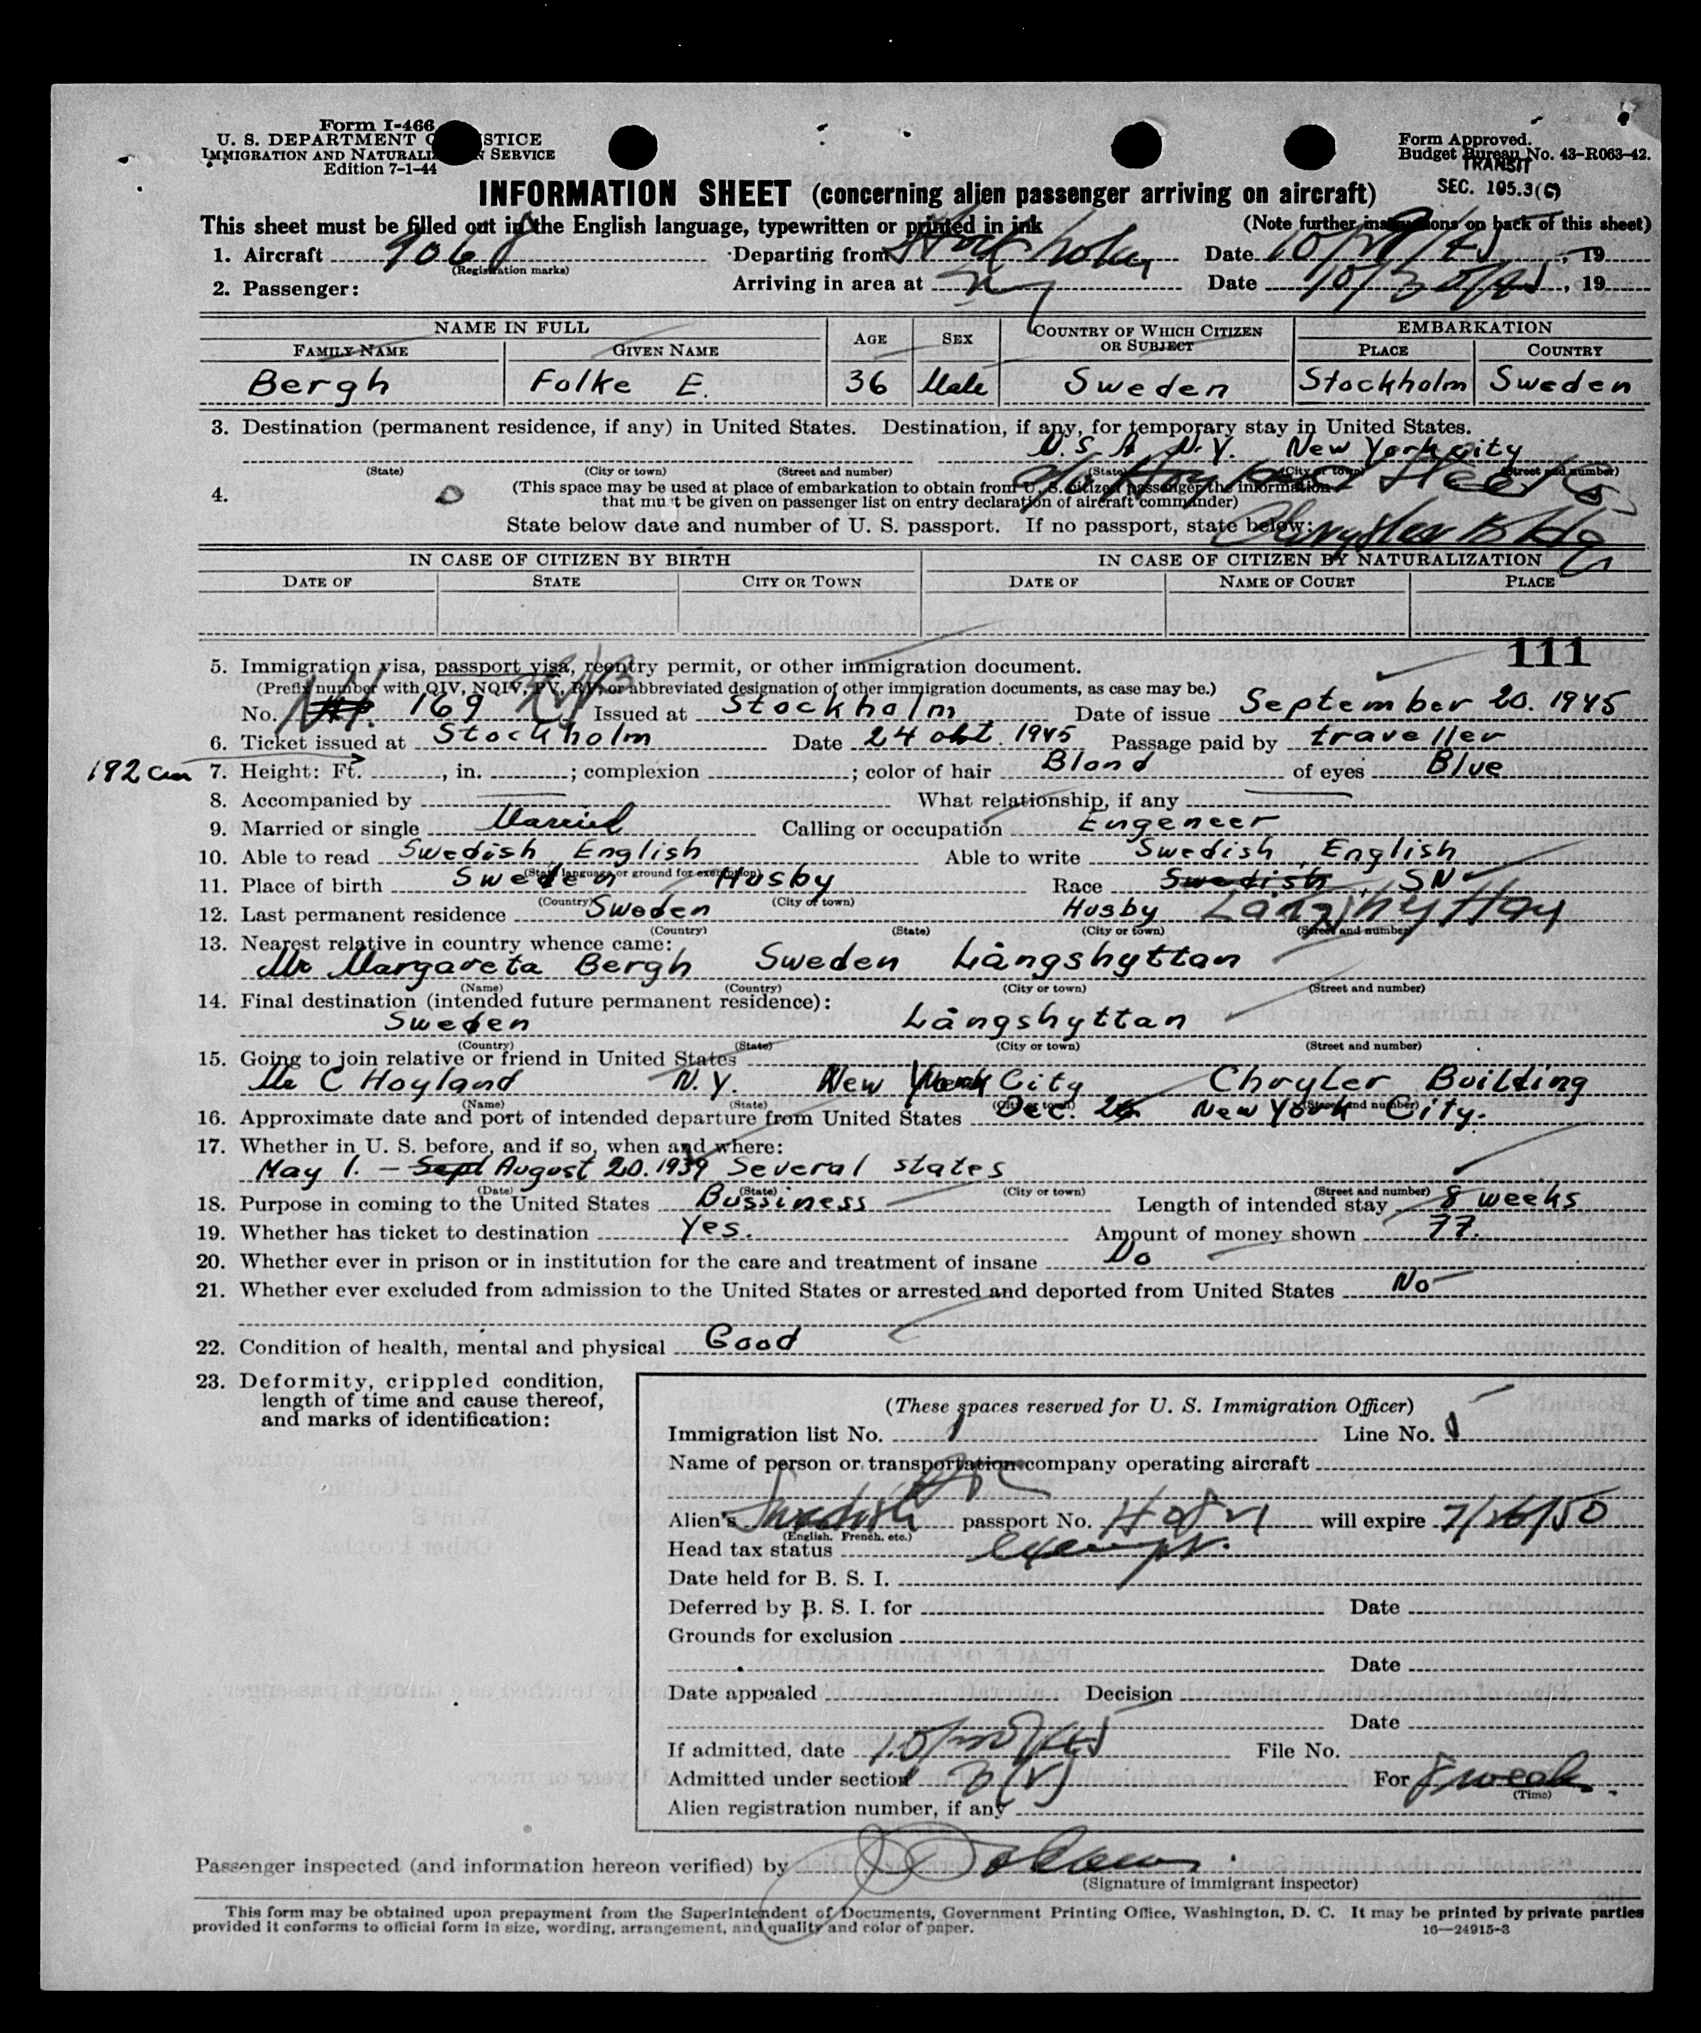 Form I-466
U. S. DEPARTMENT O STICE
IMMIGRATION AND NATURALIZ N SERVICE
Edition 7-1-44
Form Approved.
Budget Bureau No. 43-R063-42.
TRANSIT
SEC. 105.3(C)
INFORMATION SHEET (concerning alien passenger arriving on aircraft)
This sheet must be filled out in the English language, typewritten or printed in ink (Note further instructions on back of this sheet)
1. Aircraft 9068 Departing from Stockholm Date 10/29/45, 19
(Registration marks)
2. Passenger: Arriving in area at NY Date 10/30/45, 19
NAME IN FULL AGE SEX COUNTRY OF WHICH CITIZEN OR SUBJECT EMBARKATION
FAMILY NAME GIVEN NAME PLACE COUNTRY
Bergh Folke E. 36 Male Sweden Stockholm Sweden
3. Destination (permanent residence, if any) in United States. Destination, if any, for temporary stay in United States.
U. S. A N.Y. New York City
(State) (City or town) (Street and number) (State) (City or town) (Street and number)
c/o Steel Co
4. (This space may be used at place of embarkation to obtain from U. S. citizen passenger the information
that must be given on passenger list on entry declaration of aircraft commander)
State below date and number of U. S. passport. If no passport, state below:
Chrysler Bldg
IN CASE OF CITIZEN BY BIRTH IN CASE OF CITIZEN BY NATURALIZATION
DATE OF STATE CITY OR TOWN DATE OF NAME OF COURT PLACE
111
5. Immigration visa, passport visa, reentry permit, or other immigration document.
(Prefix number with QIV, NQIV, PV, RP, or abbreviated designation of other immigration documents, as case may be.)
No. 169 Issued at Stockholm Date of issue September 20. 1945
6. Ticket issued at Stockholm Date 24 okt. 1945 Passage paid by traveller
192 cm 7. Height: Ft. , in. ; complexion ; color of hair Blond of eyes Blue
8. Accompanied by What relationship, if any
9. Married or single Married Calling or occupation Engeneer
10. Able to read Swedish, English Able to write Swedish, English
(State language or ground for exemption)
11. Place of birth Sweden Husby Race Swedish, SN
(Country) (City or town)
12. Last permanent residence Sweden Husby Långshyttan
(Country) (State) (City or town) (Street and number)
13. Nearest relative in country whence came:
Margareta Bergh Sweden Långshyttan
(Name) (Country) (City or town) (Street and number)
14. Final destination (intended future permanent residence):
Sweden Långshyttan
(Country) (State) (City or town) (Street and number)
15. Going to join relative or friend in United States
Mr C Hoyland N.Y. New York City Chrysler Building
(Name) (State) (City or town) (Street and number)
16. Approximate date and port of intended departure from United States Dec. New York City.
17. Whether in U. S. before, and if so, when and where:
May 1. – Sept August 20. 1939 Several states
(Date) (State) (City or town) (Street and number)
18. Purpose in coming to the United States Bussiness Length of intended stay 8 weeks
19. Whether has ticket to destination Yes. Amount of money shown 77.
20. Whether ever in prison or in institution for the care and treatment of insane No
21. Whether ever excluded from admission to the United States or arrested and deported from United States No
22. Condition of health, mental and physical Good
23. Deformity, crippled condition,
length of time and cause thereof,
and marks of identification:
(These spaces reserved for U. S. Immigration Officer)
Immigration list No. 1 Line No. 1
Name of person or transportation company operating aircraft
Alien's Swedish passport No. will expire 7/26/50
(English, French, etc.)
Head tax status exempt.
Date held for B. S. I.
Deferred by B. S. I. for Date
Grounds for exclusion
Date
Date appealed Decision
Date
If admitted, date 10/30/45 File No.
Admitted under section 3(2) For 8 weeks
(Time)
Alien registration number, if any
Passenger inspected (and information hereon verified) by
(Signature of immigrant inspector)
This form may be obtained upon prepayment from the Superintendent of Documents, Government Printing Office, Washington, D. C. It may be printed by private parties
provided it conforms to official form in size, wording, arrangement, and quality and color of paper. 16—24915-3